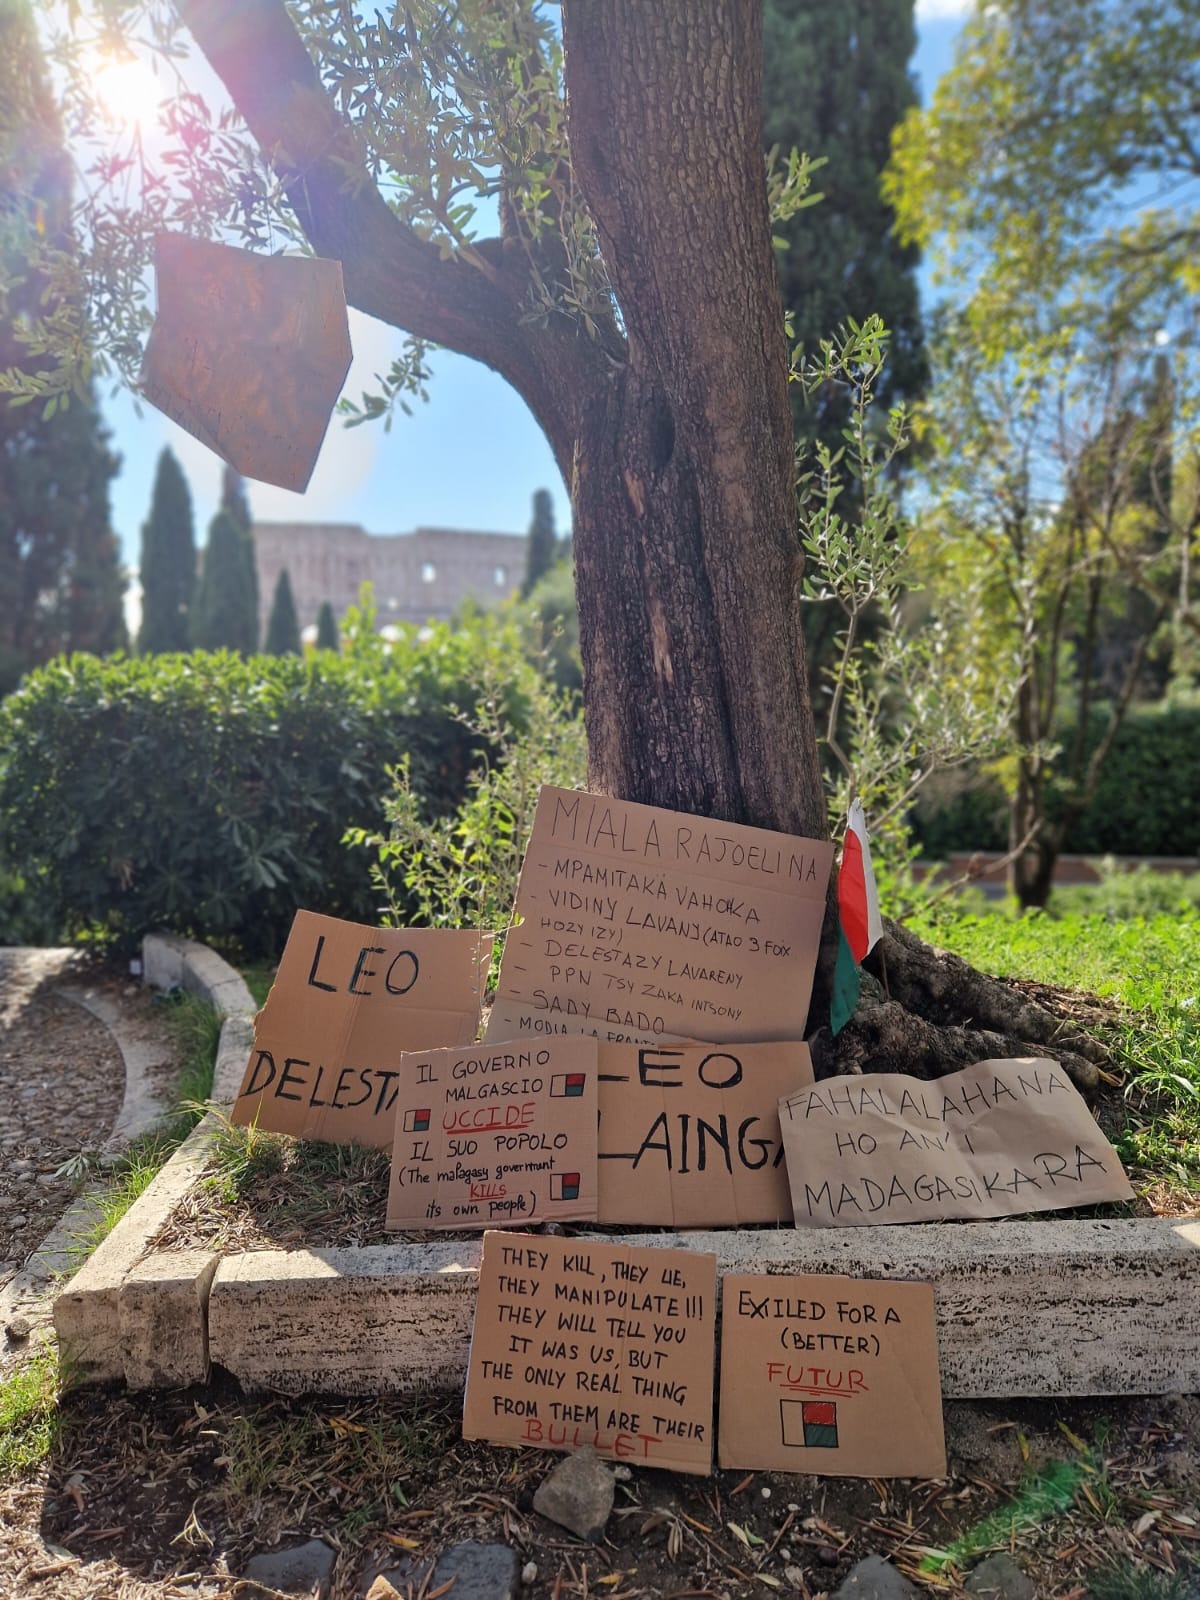 MIALA RAJOELINA
- MPAMITAKA VAHOKA
- VIDINY LAVANY (ATAO 3 FOIX
HOZY IZY)
- DELESTAZY LAVARENY
- PPN TSY ZAKA INTSONY
- SADY BADO
- MODIA
LEO
DELESTA
IL GOVERNO
MALGASCIO
UCCIDE
IL SUO POPOLO
(The malagasy goverment
KILLS
its own people)
LEO
LAINGA
FAHALALAHANA
HO AN'I
MADAGASIKARA
THEY KILL, THEY LIE,
THEY MANIPULATE!!!
THEY WILL TELL YOU
IT WAS US, BUT
THE ONLY REAL THING
FROM THEM ARE THEIR
BULLET
EXILED FOR A
(BETTER)
FUTUR